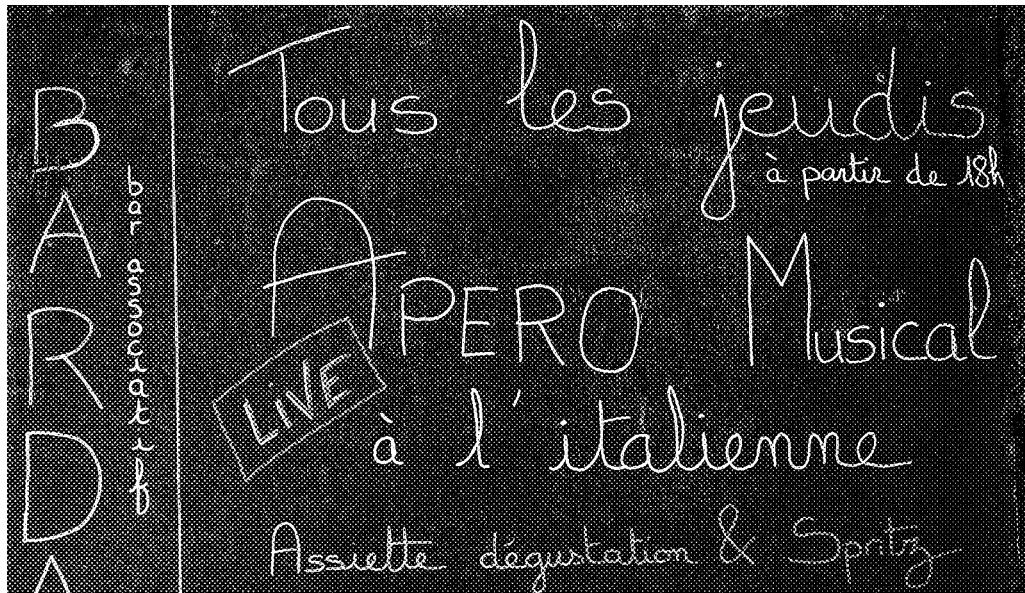 BARDA
bar associatif
Tous les jeudis
à partir de 18h
APERO Musical
LIVE
à l'italienne
Assiette dégustation & Spritz